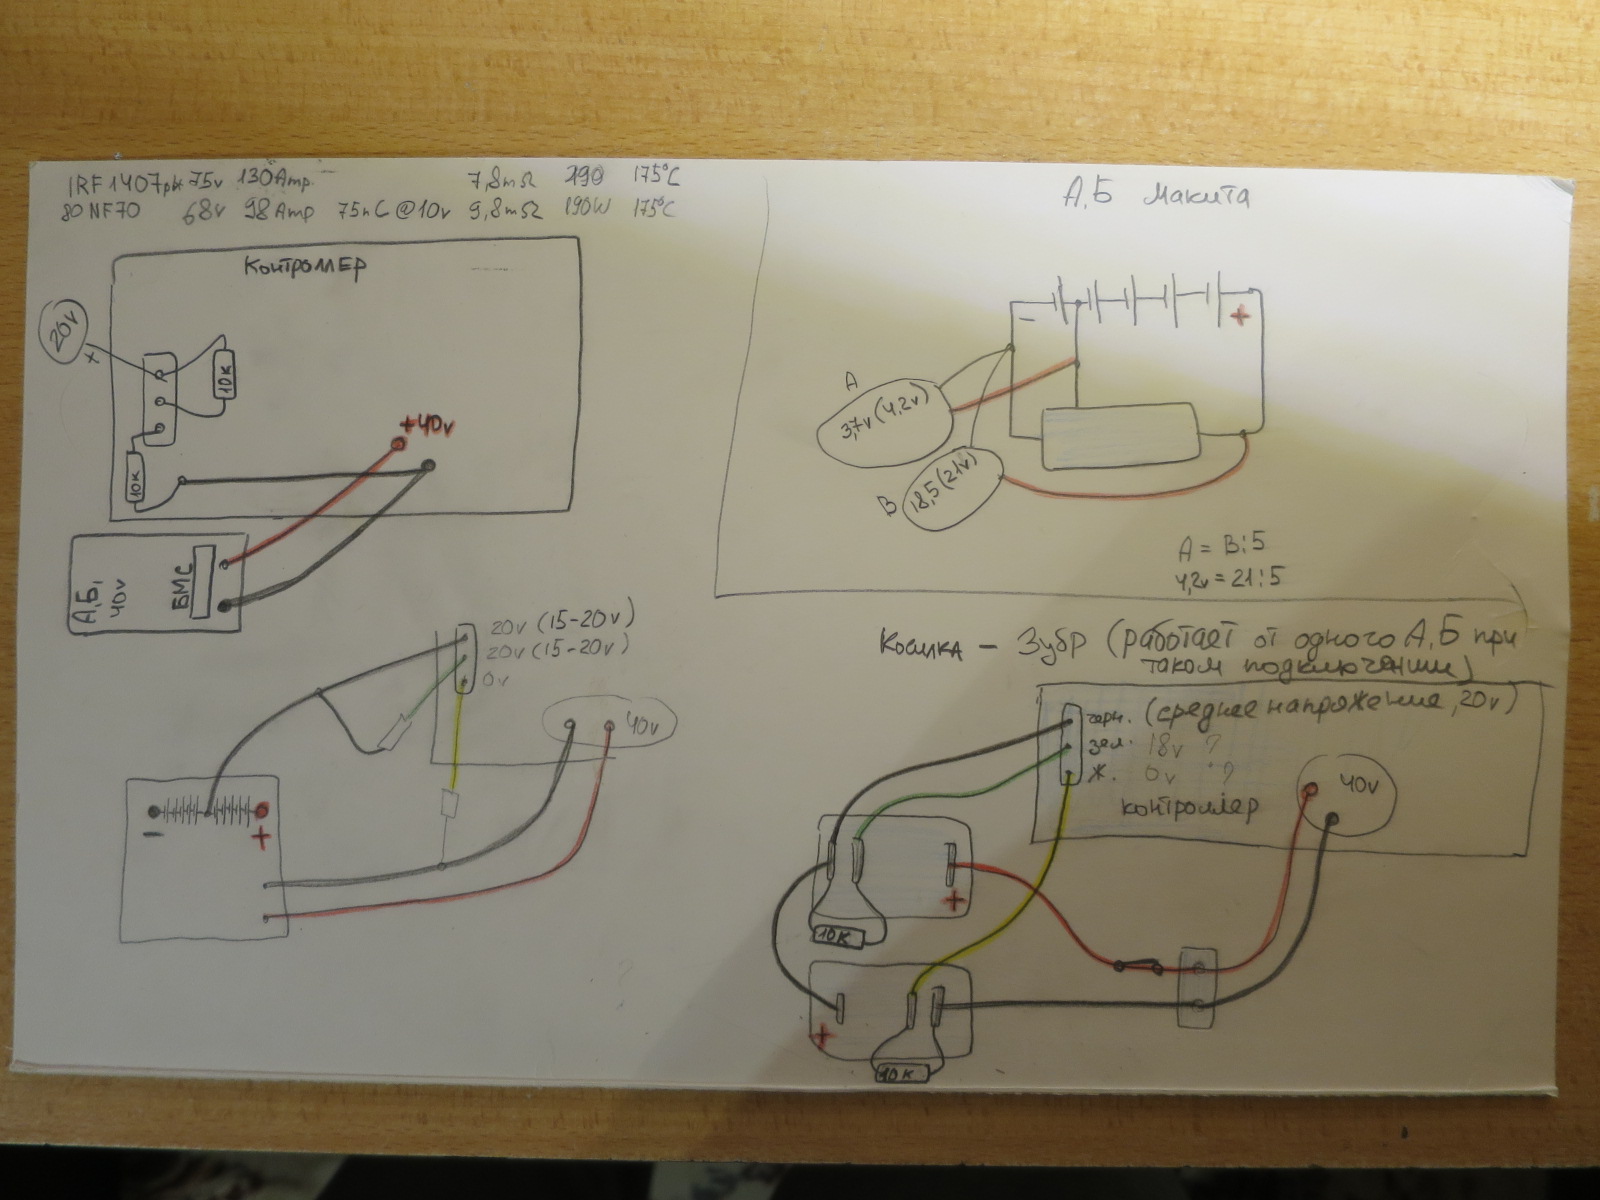 IRF1407pbk 75v 130Amp. 7,8mΩ 190 175°C
80NF70 68v 98Amp 75nC@10v 9,8mΩ 190W 175°C
Контроллер
20v
+
10к
10к
+40v
А,Б,
40v
БМС
20v (15-20v)
20v (15-20v)
0v
40v
-
+
А,Б Макита
-
+
А
3,7v (4,2v)
В
18,5 (21v)
А = В:5
4,2v = 21:5
Косилка - Зубр (работает от одного А,Б при
таком подключении)
черн. (среднее напряжение, 20v)
зел. 18v ?
ж. 0v ?
контроллер
40v
+
10к
+
10к